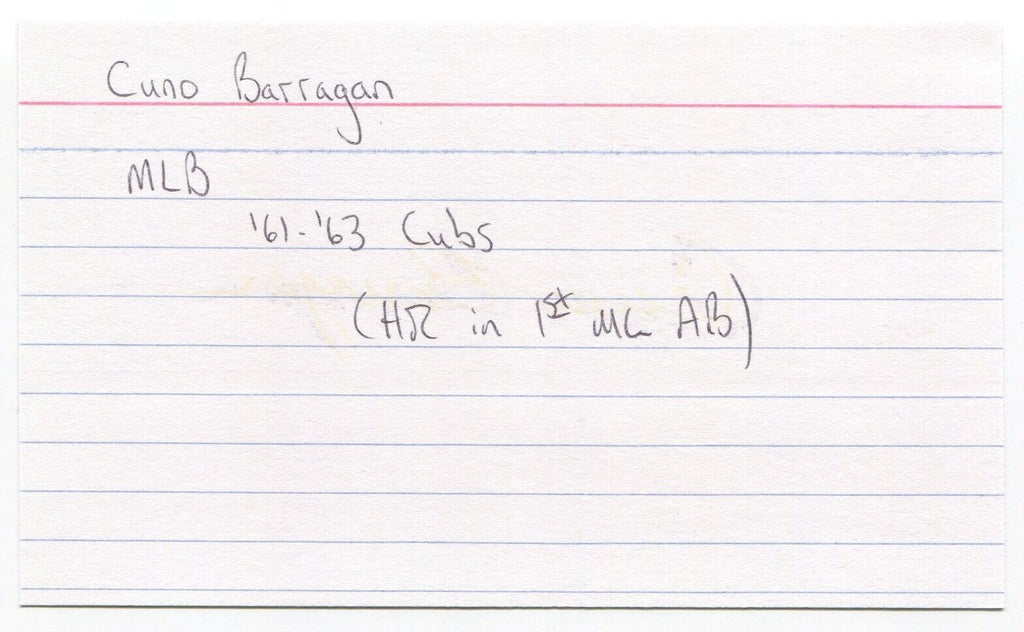 Cuno Barragan
MLB
'61-'63 Cubs
(HR in 1st ML AB)